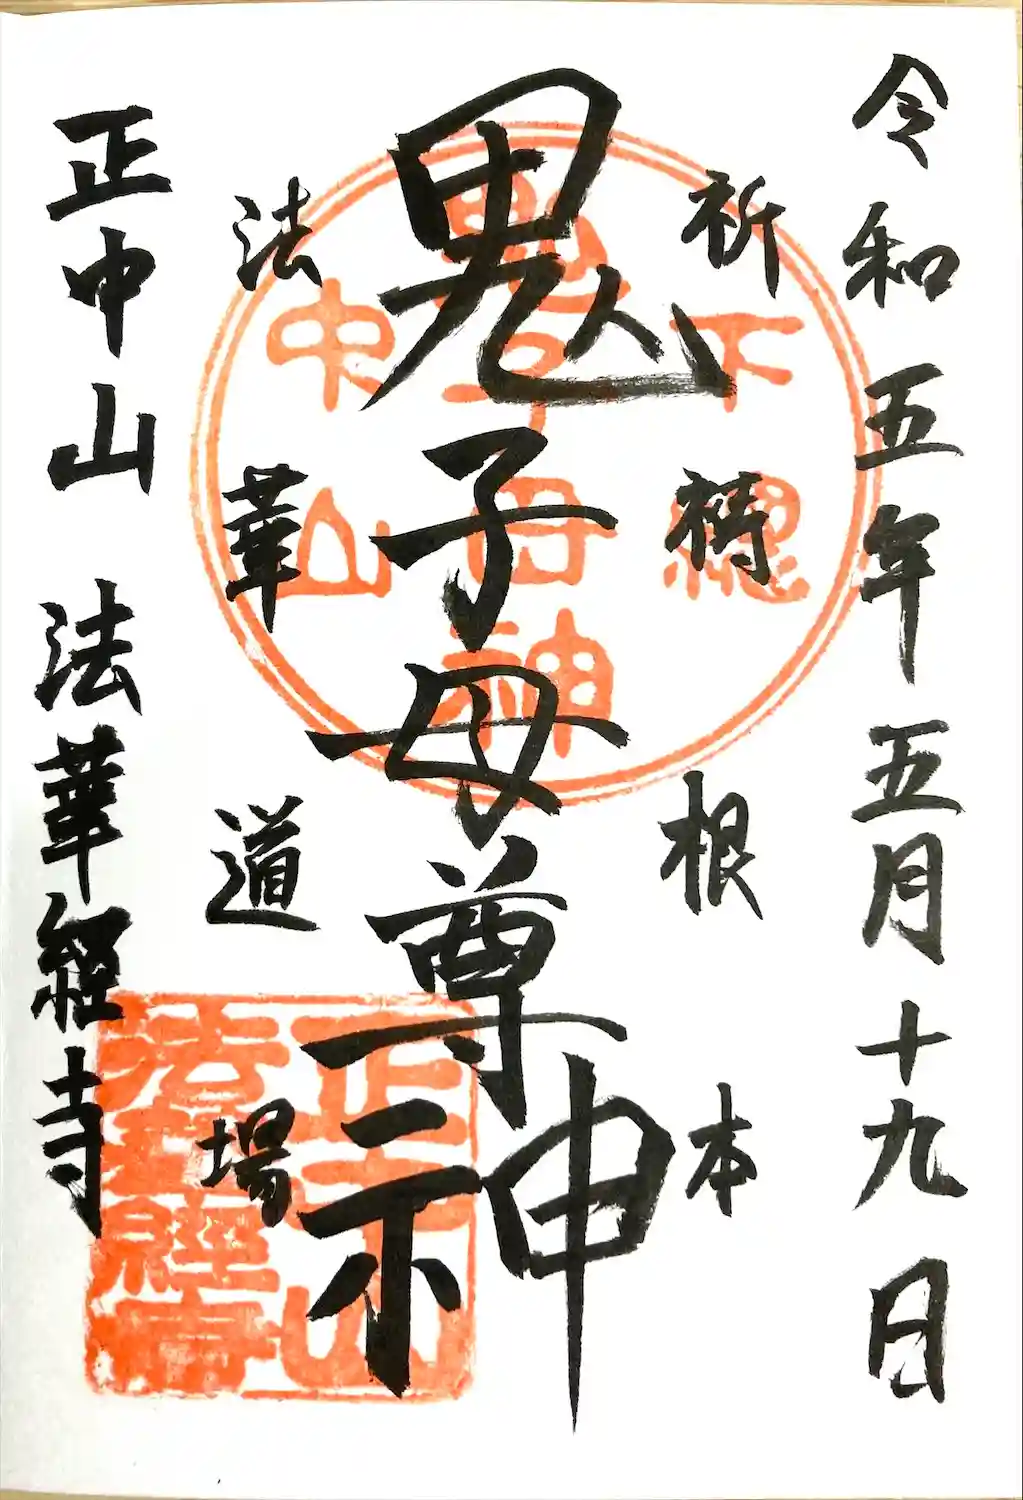 令和五年五月十九日
祈祷根本
鬼子母尊神
法華道場
正中山 法華経寺
下總
鬼子母神
中山
正中山
法華経寺